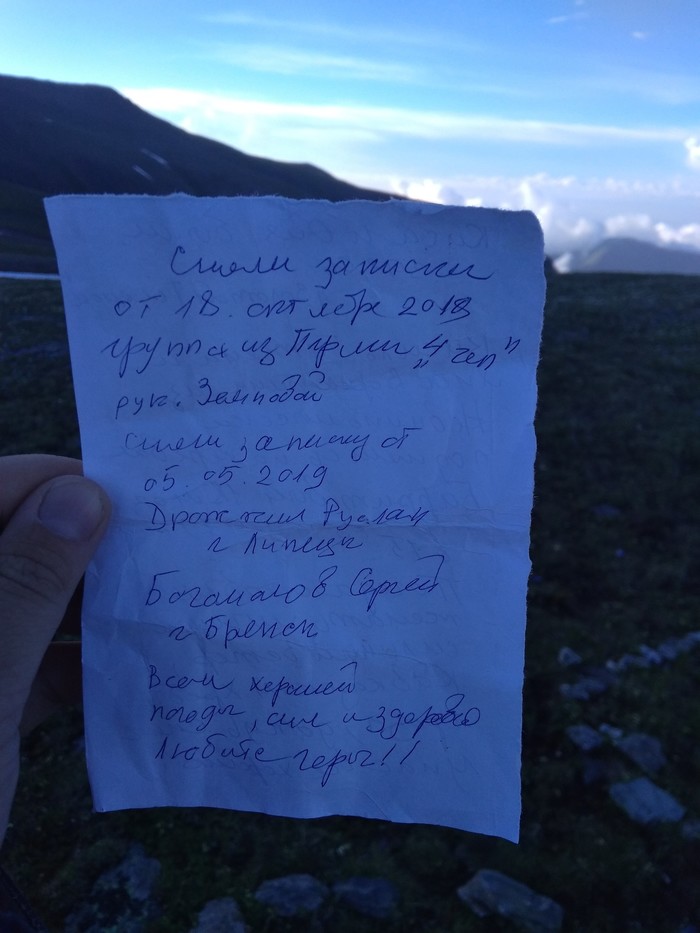 Сняли записки
от 18. октября 2018
группа из Перми „4 чел"
рук.
сняли записку от
05.05.2019
Дрожжин Руслан
г Липецк
Богомолов Сергей
г Брянск
Всем хорошей
погоды, сил и здоровья
Любите горы!!